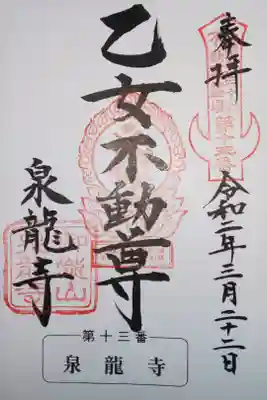 奉拝
令和二年三月二十二日
乙女不動尊
泉龍寺
第十三番
泉龍寺